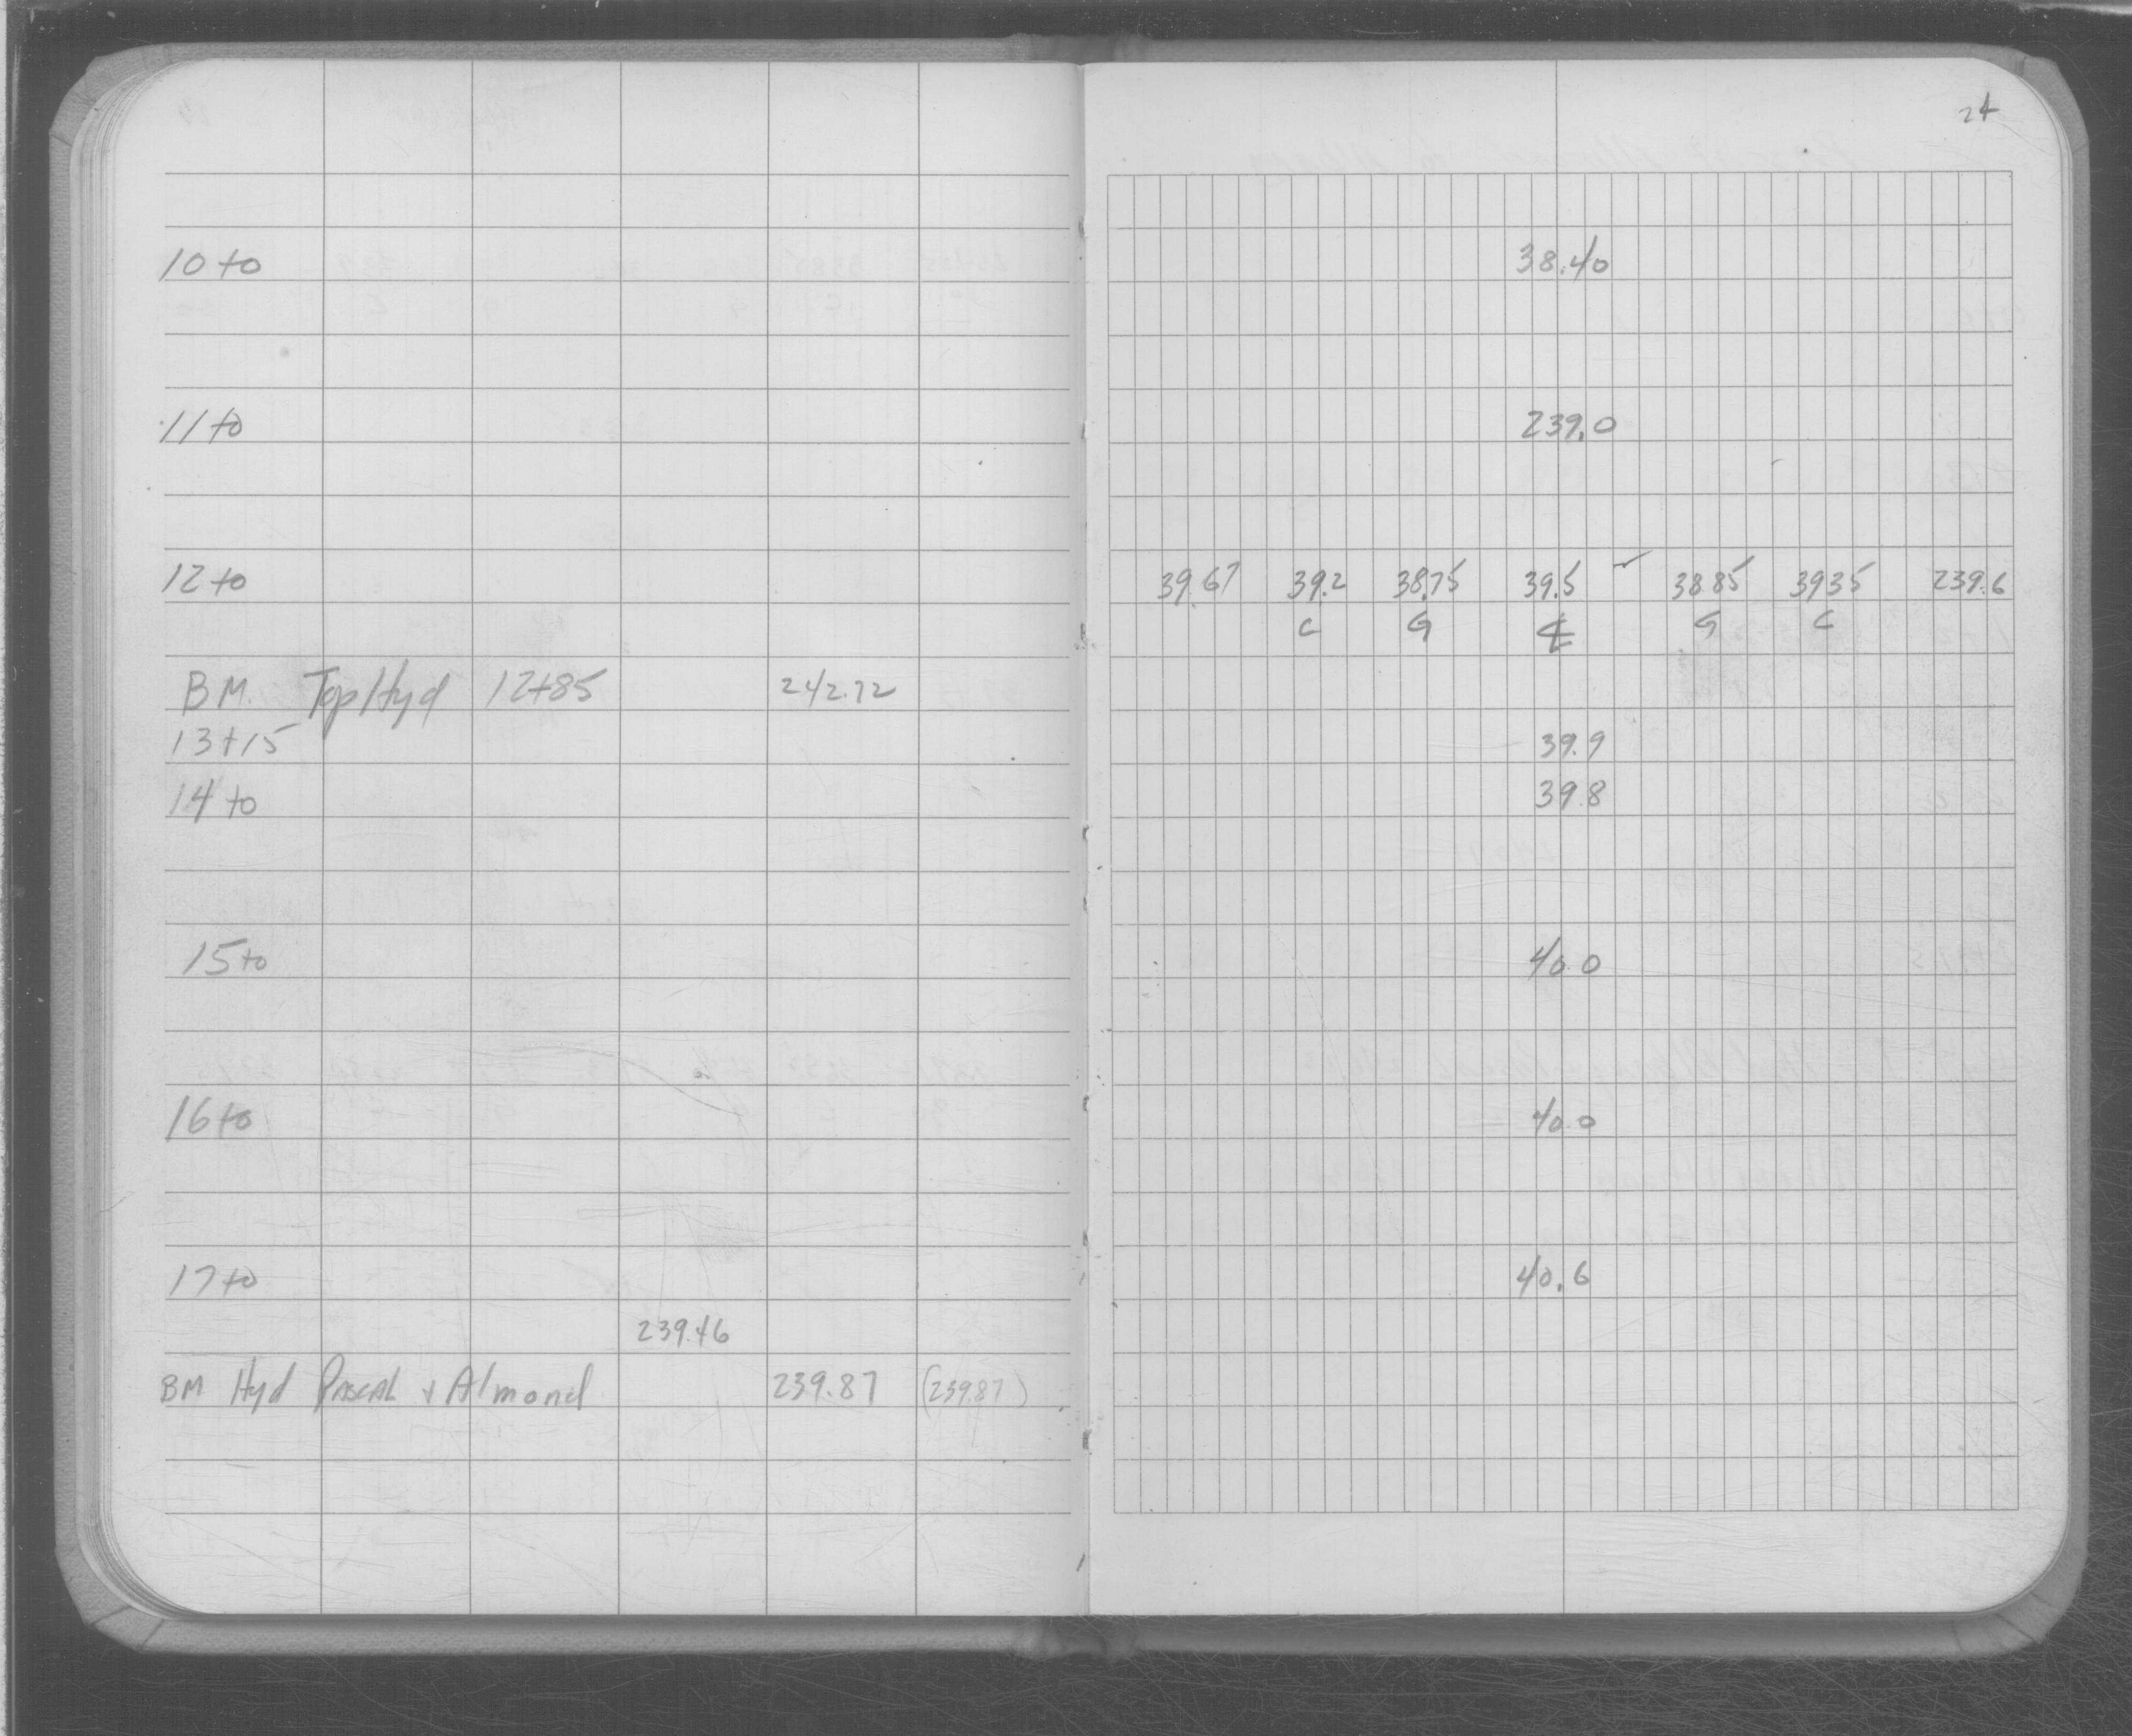 24
10+0 38.40
11+0 239.0
12+0 39.67 39.2 38.75 39.5 ✓ 38.85 3935 239.6
C G ℄ G C
BM. Top Hyd 12+85 242.72
13+15 39.9
14+0 39.8
15+0 40.0
16+0 40.0
17+0 40.6
239.46
BM Hyd PASCAL + Almond 239.87 (239.87)